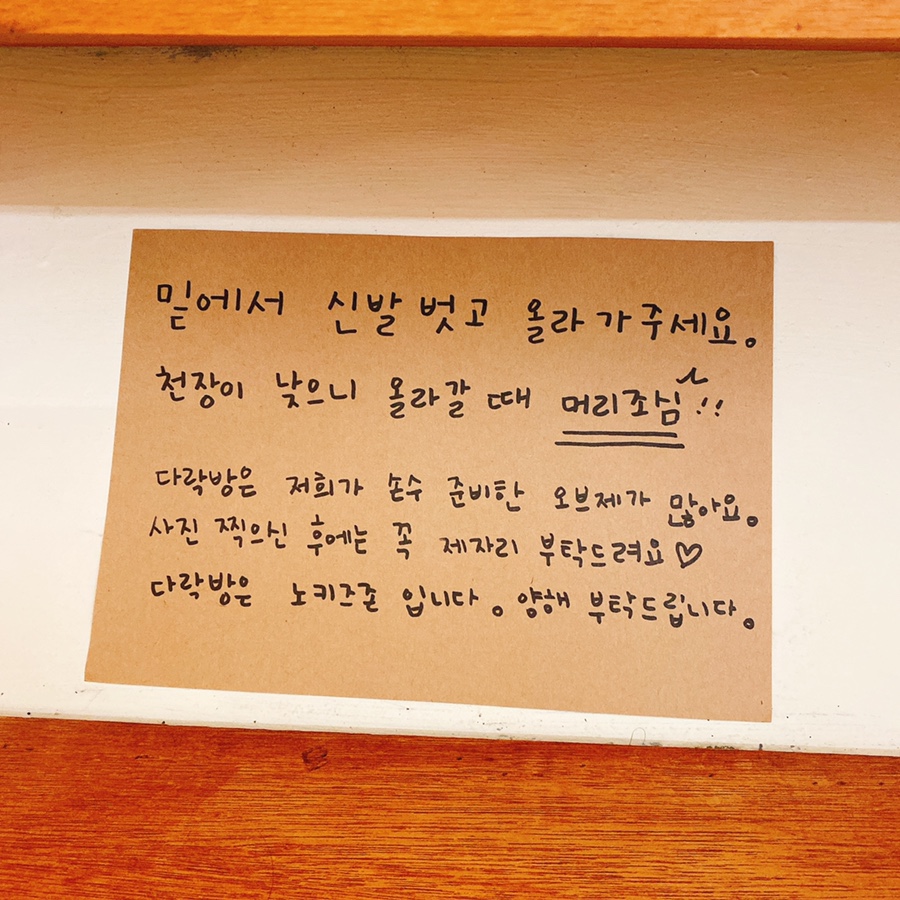 밑에서 신발 벗고 올라가주세요.
천장이 낮으니 올라갈 때 머리조심!!
다락방은 저희가 손수 준비한 오브제가 많아요.
사진 찍으신 후에는 꼭 제자리 부탁드려요♡
다락방은 노키즈존 입니다. 양해 부탁드립니다.